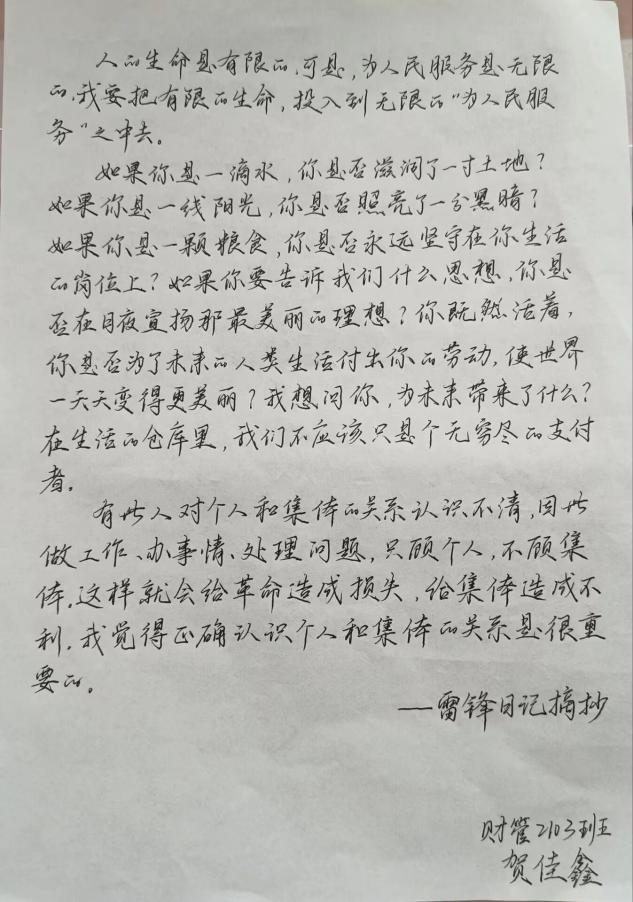 人的生命是有限的,可是,为人民服务是无限
的,我要把有限的生命,投入到无限的“为人民服
务”之中去。
如果你是一滴水,你是否滋润了一寸土地?
如果你是一线阳光,你是否照亮了一分黑暗?
如果你是一颗粮食,你是否永远坚守在你生活
的岗位上?如果你要告诉我们什么思想,你是
否在日夜宣扬那最美丽的理想?你既然活着,
你是否为了未来的人类生活付出你的劳动,使世界
一天天变得更美丽?我想问你,为未来带来了什么?
在生活的仓库里,我们不应该只是个无穷尽的支付
者。
有些人对个人和集体的关系认识不清,因此
做工作、办事情、处理问题,只顾个人,不顾集
体,这样就会给革命造成损失,给集体造成不
利。我觉得正确认识个人和集体的关系是很重
要的。
——雷锋日记摘抄
财管2103班
贺佳鑫